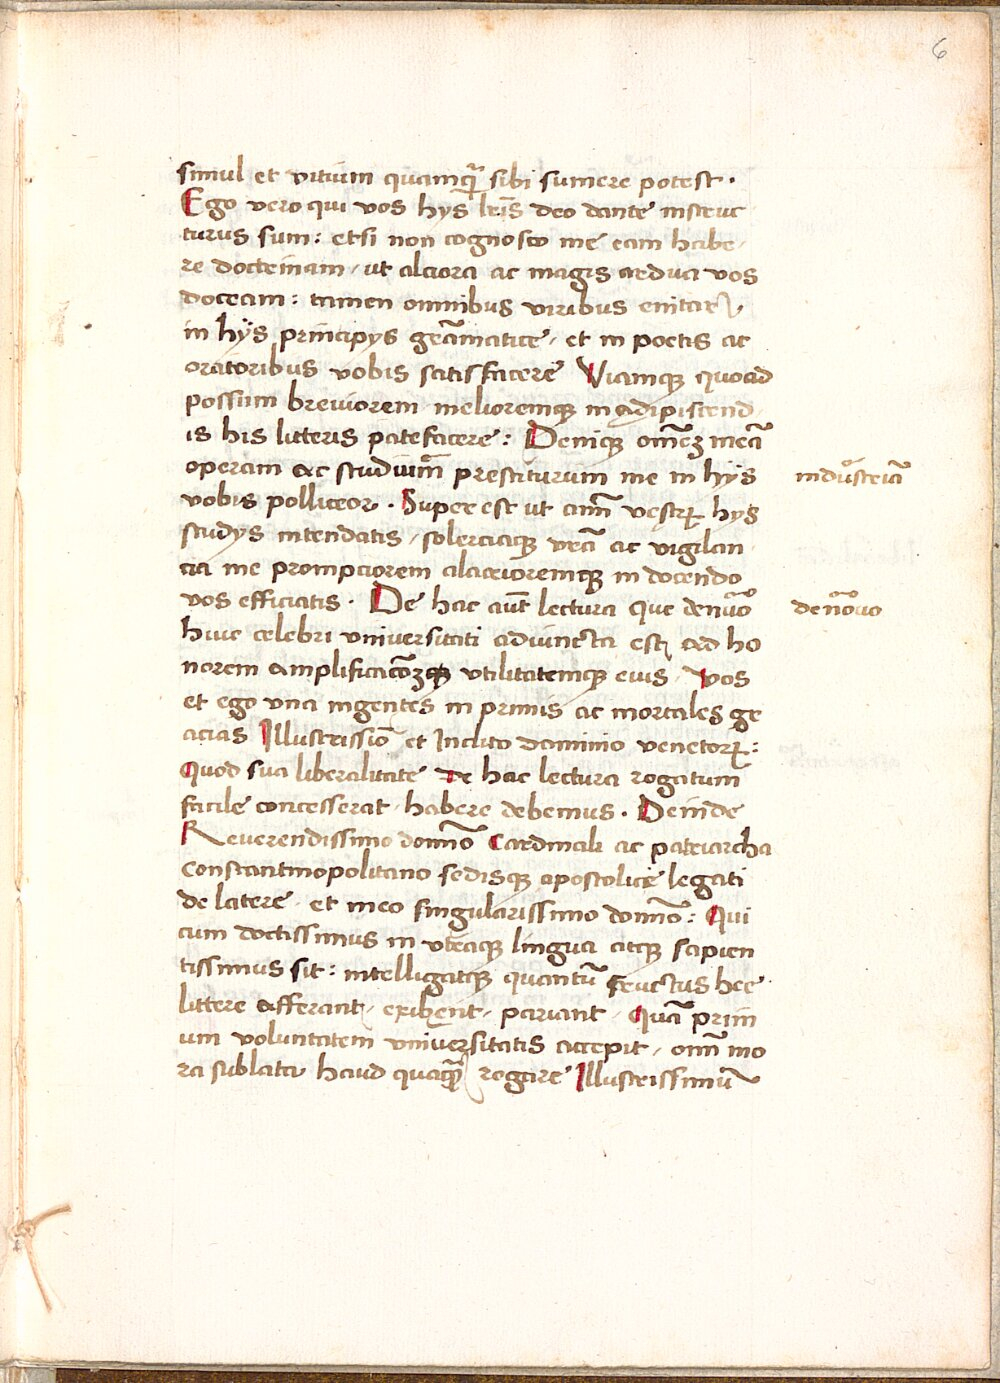 6
simul et vitium quamq̄ sibi sumere potest ·
Ego vero qui vos hys lr̄is deo dante instruc
turus sum : etsi non cognosco me eam habe,
re doctrinam , ut alciora ac magis ardua vos
doceam : tamen omnibus viribus enitar ,
in hys principys grāmatice , et in poetis ac
oratoribus vobis satisfacere Viamqꝫ quoad
possum breviorem melioremqꝫ in adipiscend
is his litteris patefacere : Deniqꝫ omēꝫ meā
operam ac studium̄ prestiturum me in hys industriā
vobis polliceor . Super est ut anīm vestrꝝ hys
studys intendatis , solerciaqꝫ vrā ac vigilan
cia me prompciorem alacrioremqꝫ in docendo
vos efficiatis . De hac aūt lectura que denuo de nōvo
huic celebri universitati adiuncta est , ad ho
norem amplificacōꝫqꝫ utilitatemqꝫ eius , Vos
et ego una ingentes in primis ac mortales gr
acias Illustrissīo et Inclito dominio venetorꝝ :
Quod sua liberalitate De hac lectura rogatum
facile concesserat , habere debemus . Deinde
Reverendissimo domīo Cardinali ac patriarcha
Constantinopolitano sedisqꝫ apostolice legati
de latere , et meo singularissimo domīo : Qui
cum doctissimus in utraqꝫ lingua atqꝫ sapien
tissimus sit : intelligatqꝫ quantū fructus hee
littere afferant , exibent , pariant , Quā prim
um voluntatem universitatis accepit , omī mo
ra sublata haud quaqꝫ rogare Illustrissimū